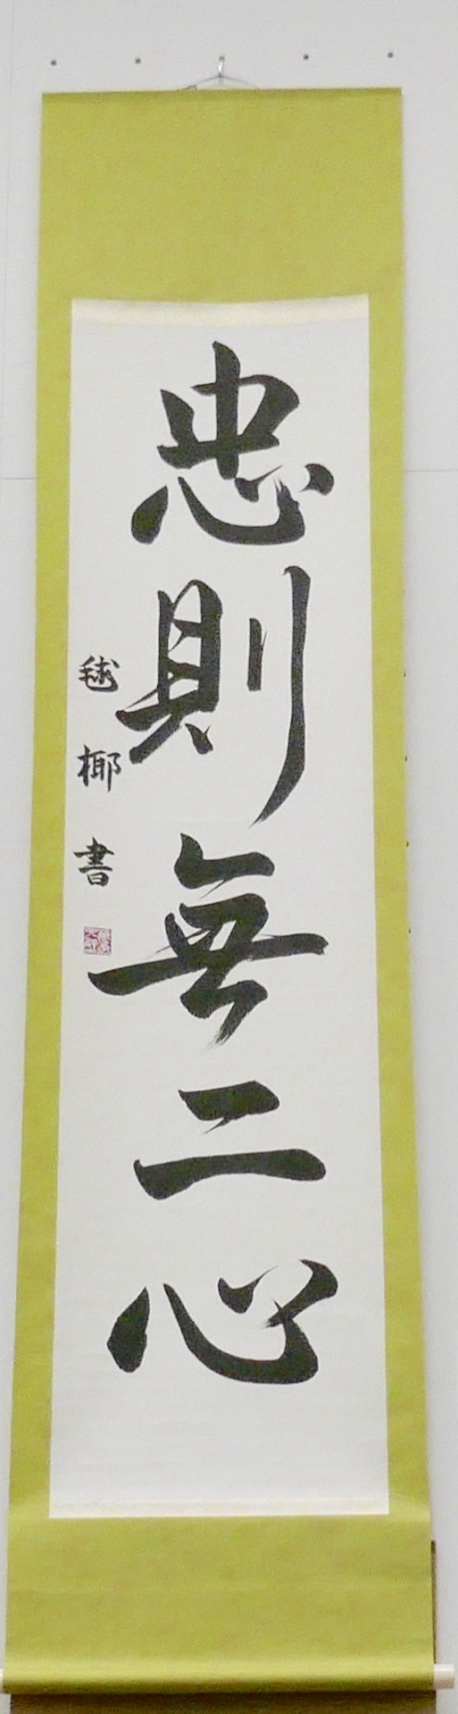 忠則無二心
毬椰書